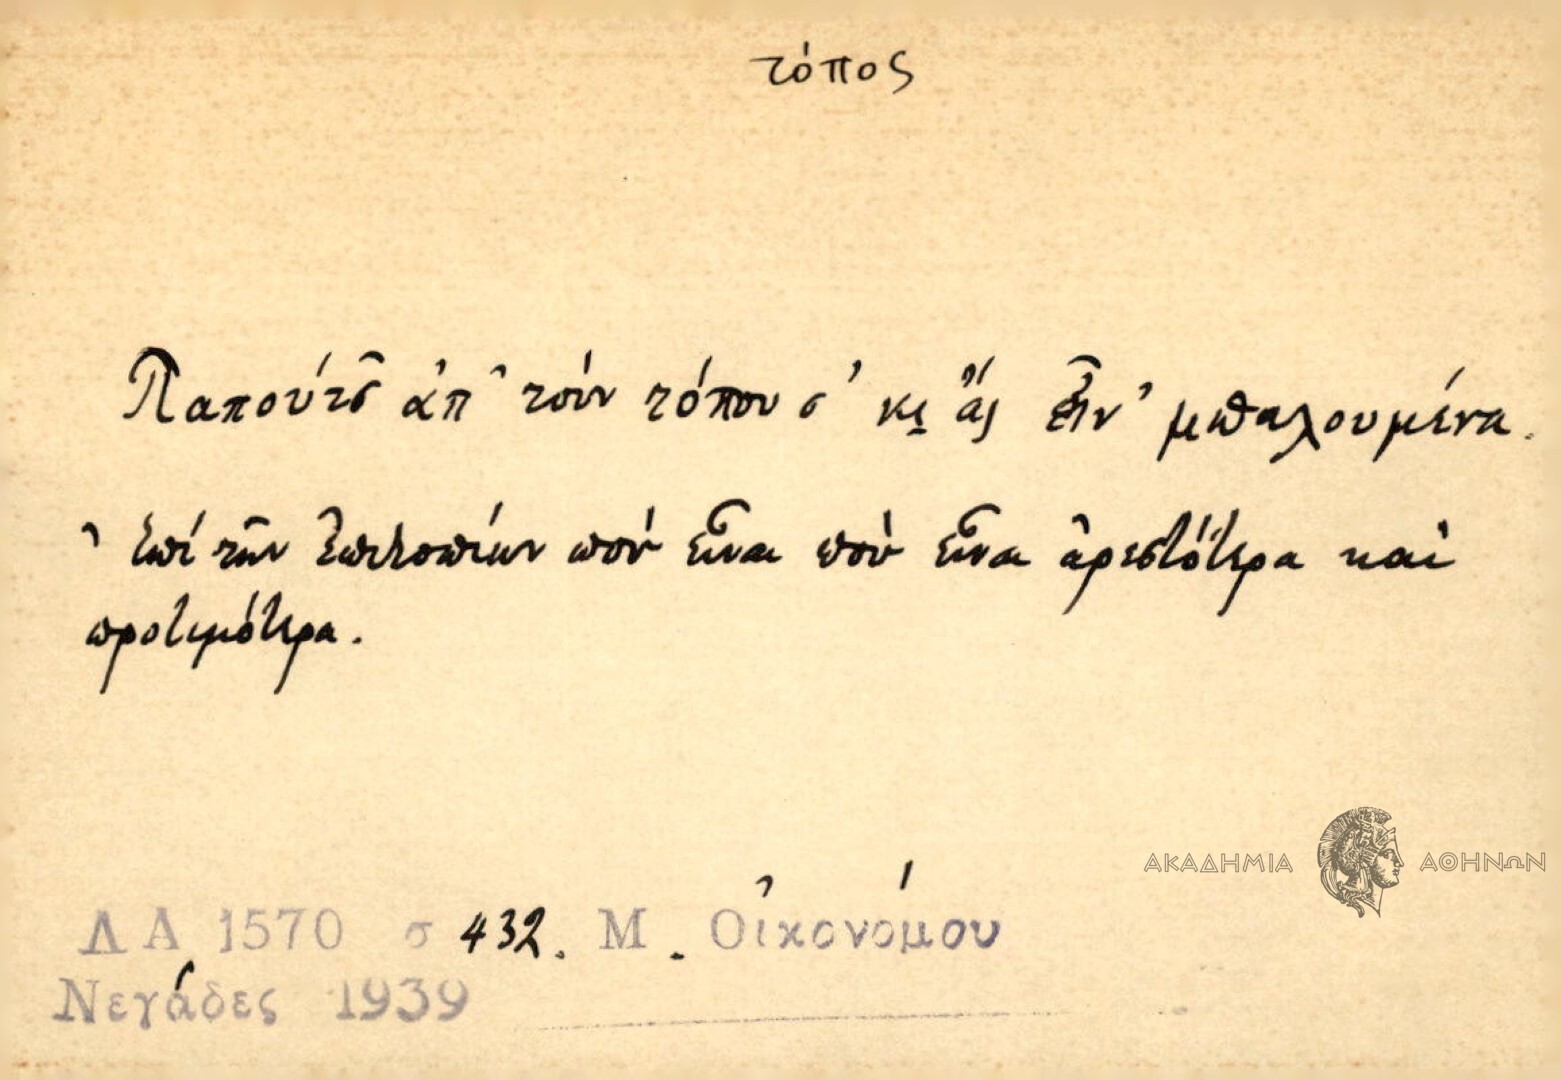 τόπος
Παπούτσ̑ ἀπ᾿ τοὺν τόπου σ᾿ κι̯ ἄς εἶν᾿ μπαλουμένα.
ἐπί τῶν ἐπιτοπίων ποὺ εἶναι ποὺ εἶναι ἀρεστότερα καὶ
προτιμότερα.
ΑΚΑΔΗΜΙΑ ΑΘΗΝΩΝ
Λ Α 1570 σ 432. Μ. Οἰκονόμου
Νεγάδες 1939